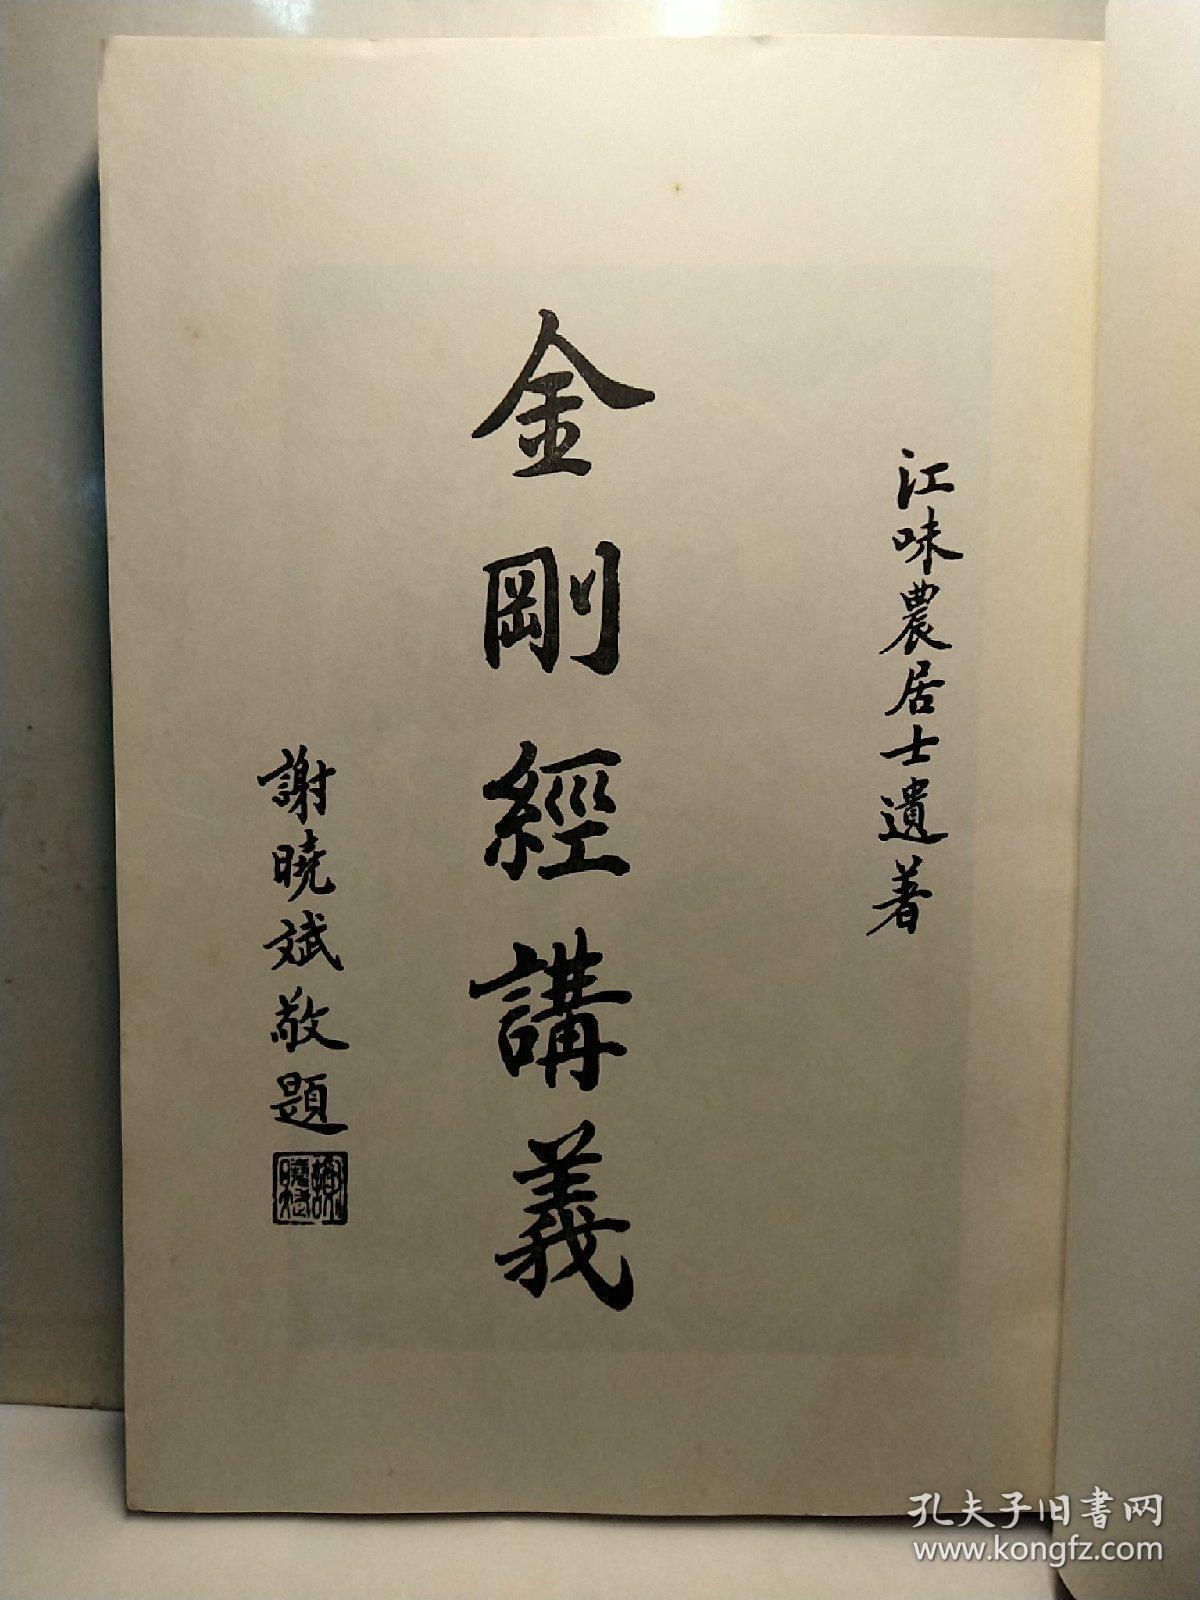 江味農居士遺著
金剛經講義
謝曉斌敬題
謝曉斌
孔夫子旧书网
www.kongfz.com